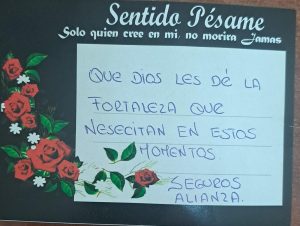 Sentido Pésame
Solo quien cree en mi, no morira Jamas
QUE DIOS LES DÉ LA
FORTALEZA QUE
NESECITAN EN ESTOS
MOMENTOS.
SEGUROS
ALIANZA.